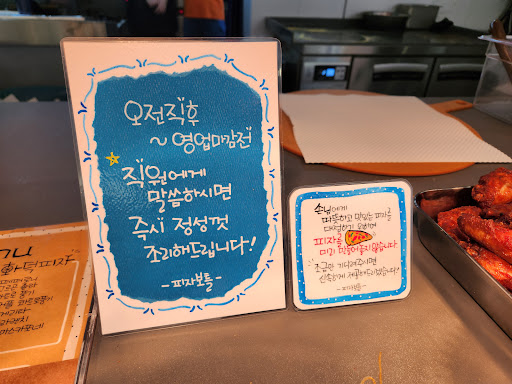 오전직후
~ 영업마감전
직원에게
말씀하시면
즉시 정성껏
조리해드립니다!
- 피자보틀 -
손님에게
따뜻하고 맛있는 피자를
대접하기 위하여
피자를
미리 만들어놓지않습니다
조금만 기다려주시면
신속하게 제공하겠습니다!
- 피자보틀 -
화덕피자